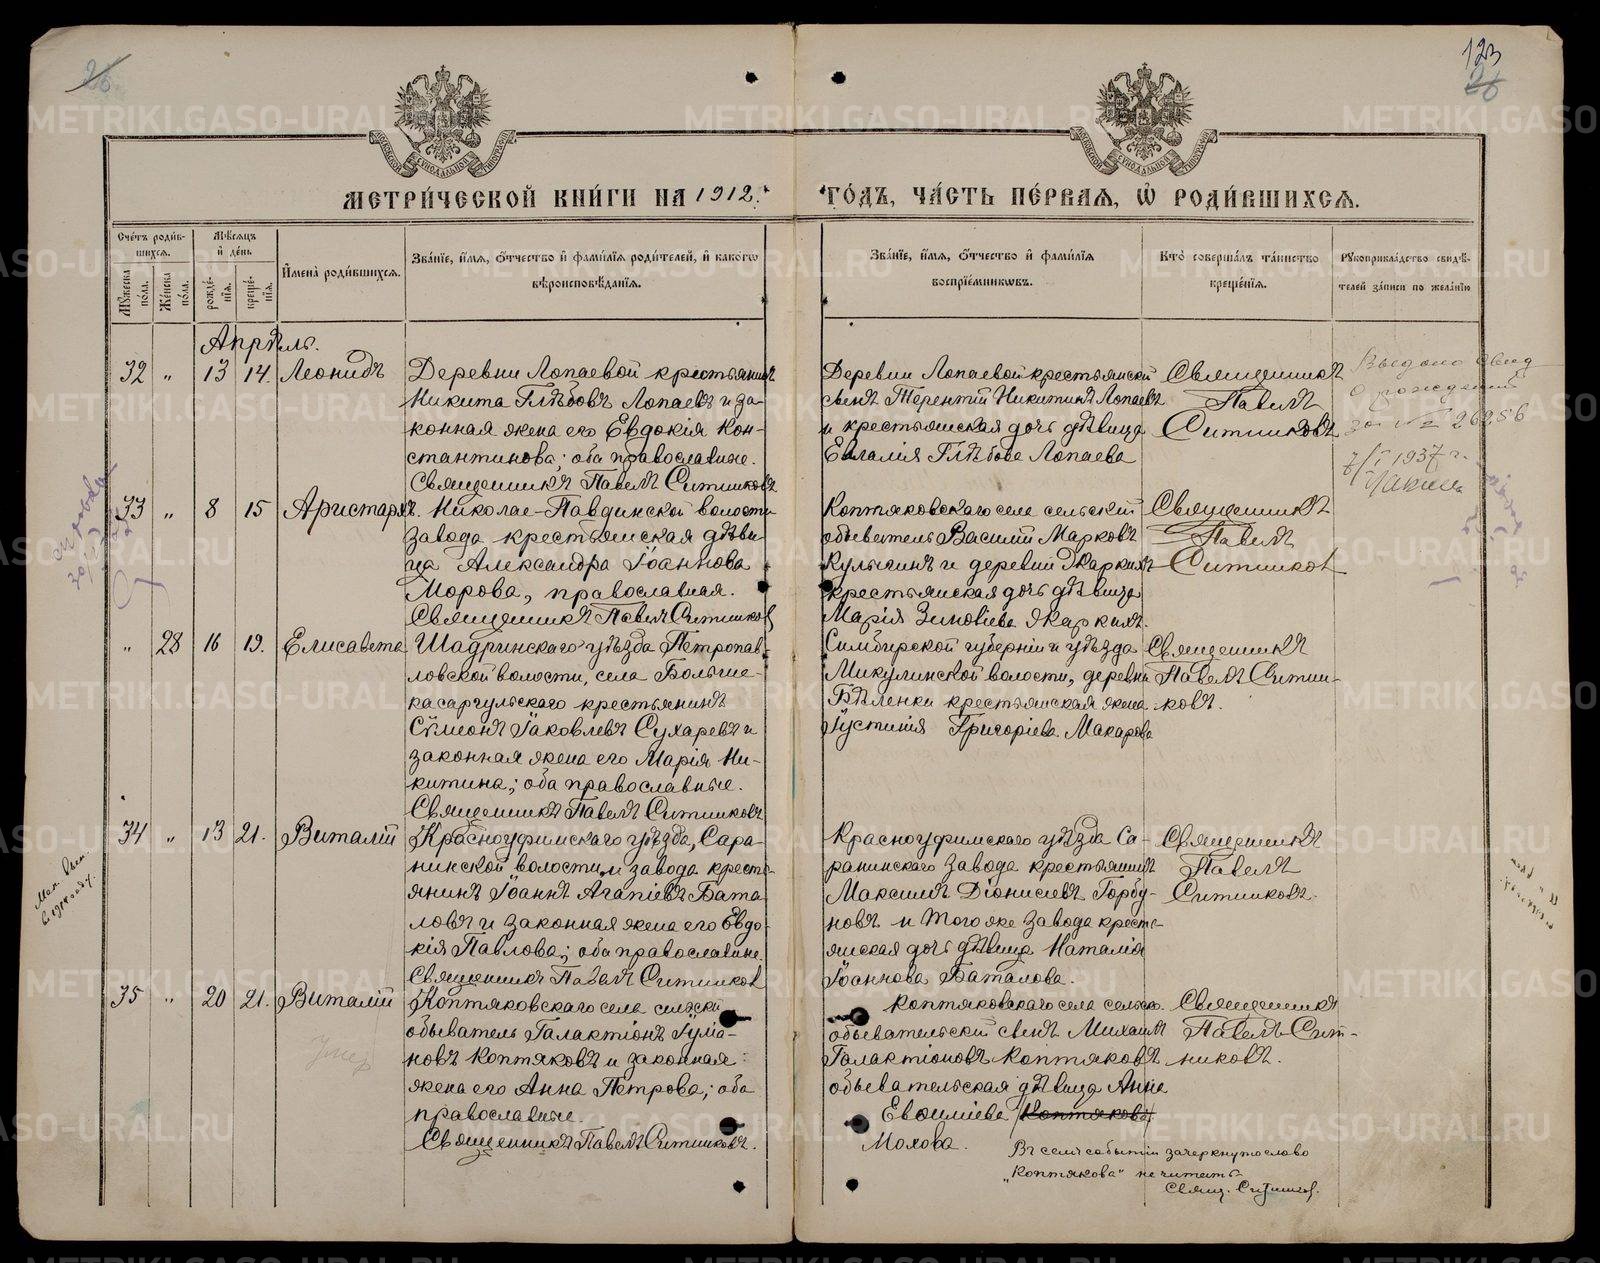 26
123
26
МЕТРИ́ЧЕСКОЙ КНИ́ГИ НА 1912.
ГО́ДЪ, ЧА́СТЬ ПЕ́РВАѦ, Ѡ҆ РОДИ́ВШИХСѦ.
Сче́тъ роди́в-
шихся.
Мꙋ́жеска по́ла.
Же́нска по́ла.
Мѣ́сяцъ и҆ де́нь
рожде́-
нїя.
креще́-
нїя.
И҆мена̀ роди́вшихся.
Зва́нїе, и҆́мя, ѻ҆́тчество и҆ фами́лїя роди́телей, и҆ како́гѡ
вѣроисповѣ́данїя.
Зва́нїе, и҆́мя, ѻ҆́тчество и҆ фами́лїя
воспрїе́мниковъ.
Кто̀ соверша́лъ та́инство
креще́нїя.
Рꙋкоприкла́дство свидѣ́-
телей за́писи по жела́нїю
Апрѣль.
32 " 13 14. Леонидъ
Деревни Лопаевой крестьянинъ
Никита Глѣбовъ Лопаевъ и за-
конная жена его Евдокія Кон-
стантинова; оба православные.
Священникъ Павелъ Ситниковъ
Деревни Лопаевой крестьянскій
сынъ Терентій Никитинъ Лопаевъ
и крестьянская дочь дѣвица
Евлалия Глѣбова Лопаева
Священникъ
Павелъ
Ситниковъ
Выдано свид
о рождении
за № 26256
7/I 1937 г.
33 " 8 15 Аристархъ.
Николае-Павдинской волости
завода крестьянская дѣви-
ца Александра Іоаннова
Морова, православная.
Священникъ Павелъ Ситников
Коптяковскаго села сельскій
обыватель Василій Марковъ
Кулыгинъ и деревни Жаркихъ
крестьянская дочь дѣвица
Марія Зиновіева Жаркихъ.
Священникъ
Павелъ
Ситников
" 28 16 19. Елисавета
Шадринскаго уѣзда Петропав-
ловской волости, села Больше-
касаргульскаго крестьянинъ
Сѵмеонъ Іаковлевъ Сухаревъ и
законная жена его Марія Ни-
китина; оба православные.
Священникъ Павелъ Ситниковъ
Симбирской губерніи и уѣзда
Микулинской волости, деревни
Бѣленки крестьянская жена
Іустинія Григоріева Макарова
Священникъ
Павелъ Ситни-
ковъ.
34 " 13 21. Виталій
Красноуфимскаго уѣзда, Сара-
нинской волости и завода кресть-
янинъ Іоаннъ Агапіевъ Бата-
ловъ и законная жена его Евдо-
кія Павлова; оба православные.
Священникъ Павелъ Ситников
Красноуфимскаго уѣзда Са-
ранинскаго завода крестьянинъ
Максимъ Діонисіевъ Горбу-
новъ и того же завода кресть-
янская дочь дѣвица Наталія
Іоаннова Баталова.
Священникъ
Павелъ
Ситниковъ.
35 " 20 21. Виталій
умер
Коптяковскаго села сельскій
обыватель Галактіонъ Іуліа-
новъ Коптяковъ и законная
жена его Анна Петрова; оба
православные.
Священникъ Павелъ Ситниковъ.
Коптяковскаго села сельско-
обывательскій сынъ Михаилъ
Галактіоновъ Коптяковъ
обывательская дѣвица Анна
Евфиміева Коптякова
Мохова.
Священникъ
Павелъ Сит-
никовъ.
Въ семъ событіи зачеркнуто слово
„Коптякова" не читать
Свящ. Ситников.